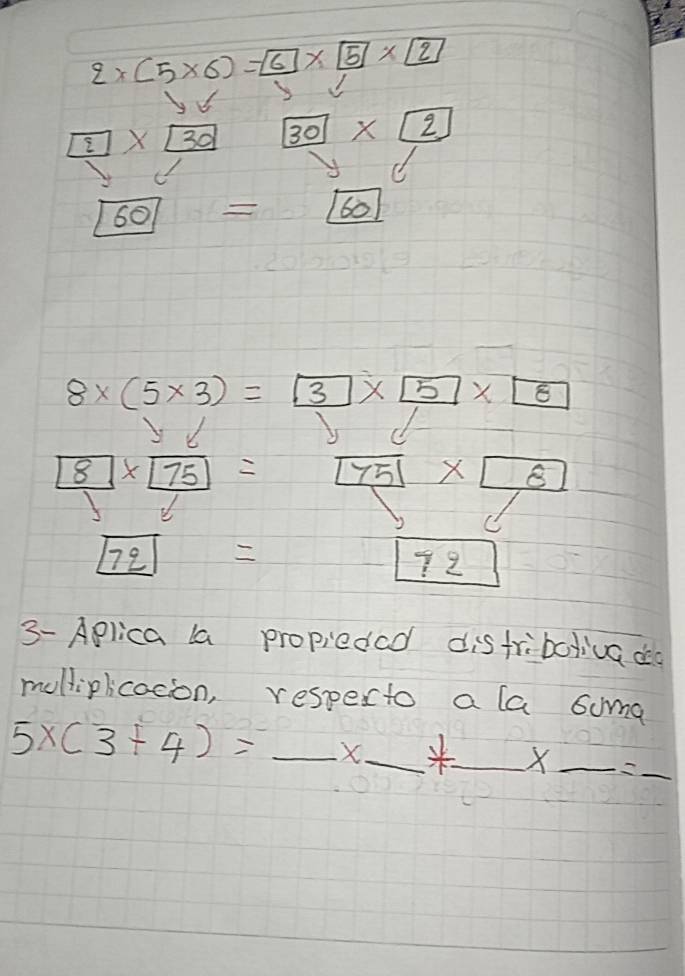 2 × (5 × 6) = 6 × 5 × 2
2 × 30 30 × 2
60 = 60
8 × (5 × 3) = 3 × 5 × 8
8 × 75 = 75 × 8
72 = 72
3- Aplica la propiedad distribotiva de la
multiplicacion, respecto a la suma
5×(3+4) = ___×___+___×___=__